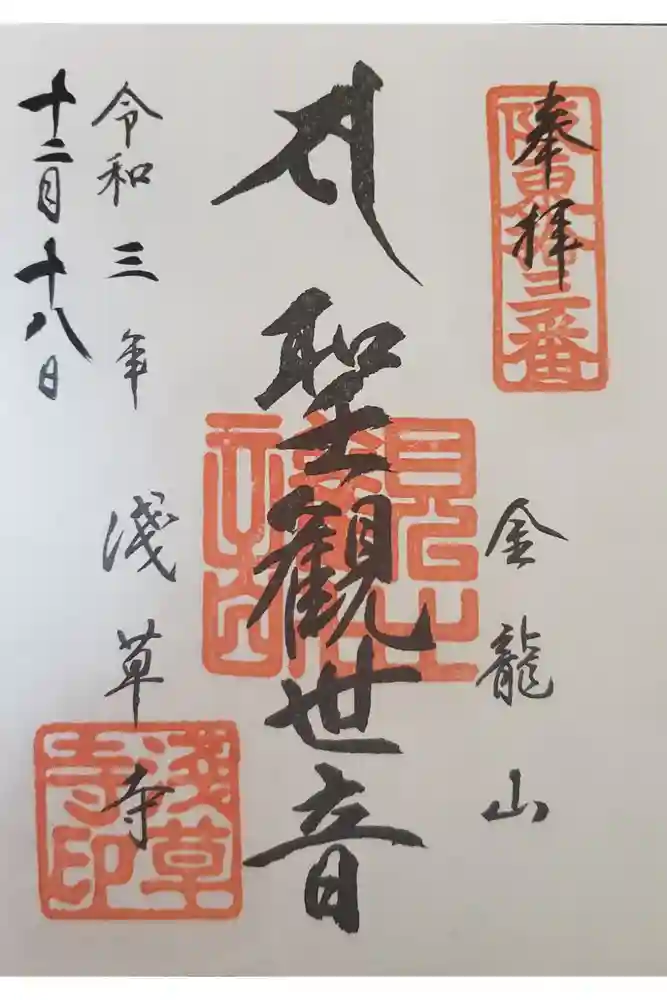 奉拝
坂東第十三番
金龍山
聖観世音
浅草寺
令和三年
十二月十八日
浅草寺印